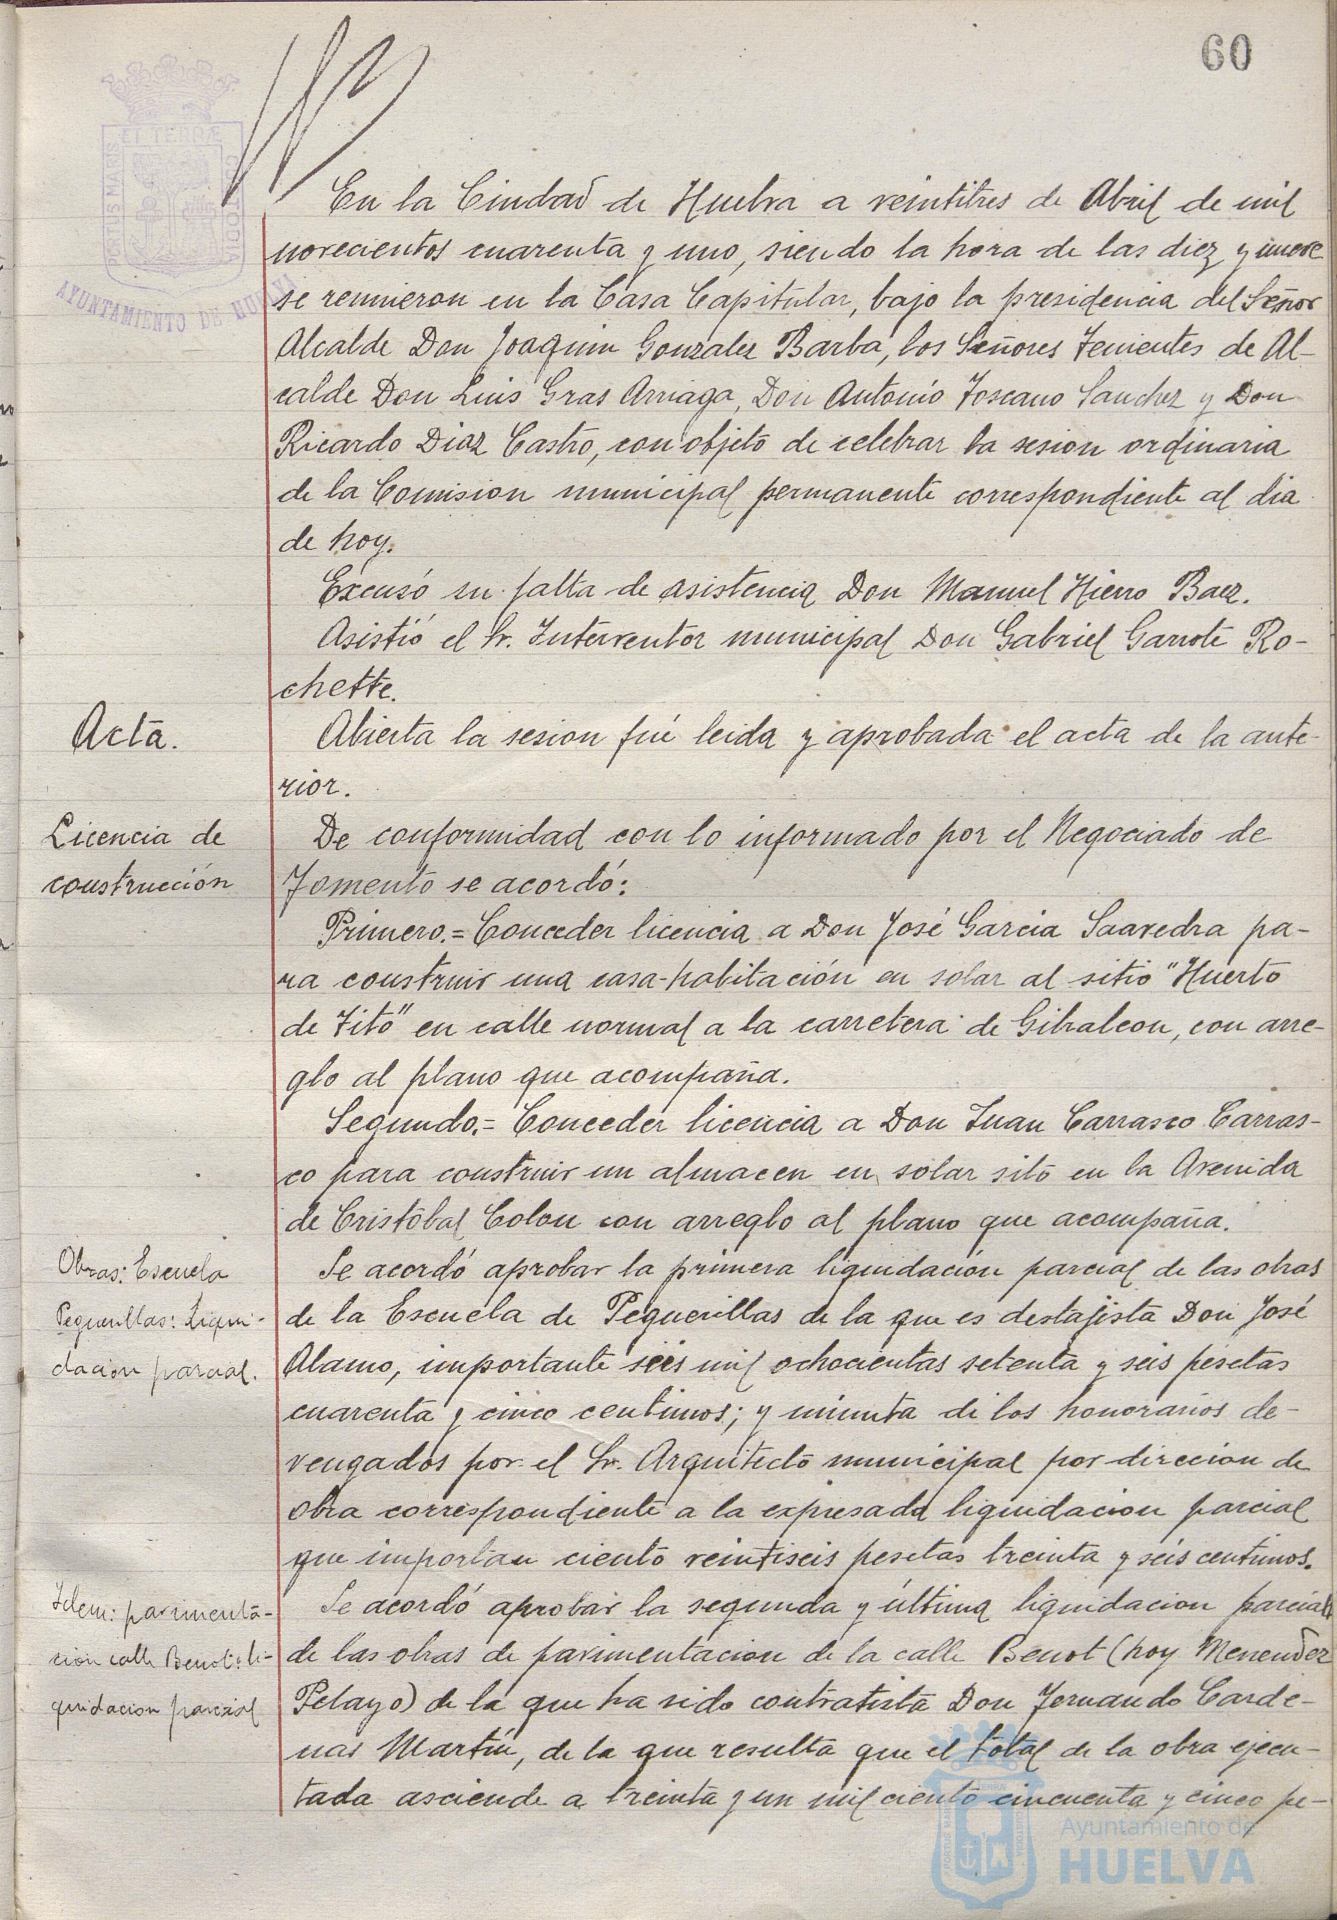 60
PORTUS MARIS ET TERRÆ CUSTODIA
AYUNTAMIENTO DE HUELVA
En la Ciudad de Huelva a veintitres de Abril de mil
novecientos cuarenta y uno, siendo la hora de las diez y nueve
se reunieron en la Casa Capitular, bajo la presidencia del Señor
Alcalde Don Joaquin Gonzalez Barba, los Señores Tenientes de Al-
calde Don Luis Gras Arriaga, Don Antonio Toscano Sanchez y Don
Ricardo Diaz Castro, con objeto de celebrar la sesion ordinaria
de la Comision municipal permanente correspondiente al dia
de hoy.
Excusó su falta de asistencia Don Manuel Hierro Baez.
Asistió el Sr. Interventor municipal Don Gabriel Garrote Ro-
chette.
Acta.
Abierta la sesion fué leida y aprobada el acta de la ante-
rior.
Licencia de
construcción
De conformidad con lo informado por el Negociado de
Fomento se acordó:
Primero.= Conceder licencia a Don José Garcia Saavedra pa-
ra construir una casa-habitación en solar al sitio "Huerto
de Tito" en calle normal a la carretera de Gibraleon, con arre-
glo al plano que acompaña.
Segundo.= Conceder licencia a Don Juan Carrasco Carras-
co para construir un almacen en solar sito en la Avenida
de Cristóbal Colon con arreglo al plano que acompaña.
Obras: Escuela
Peguerillas: Liqui-
dacion parcial.
Se acordó aprobar la primera liquidación parcial de las obras
de la Escuela de Peguerillas de la que es destajista Don José
Alamo, importante seis mil ochocientas setenta y seis pesetas
cuarenta y cinco centimos; y minuta de los honorarios de-
vengados por el Sr. Arquitecto municipal por direccion de
obra correspondiente a la expresada liquidacion parcial
que importan ciento veintiseis pesetas treinta y seis centimos.
Idem: pavimenta-
cion calle Benot: li-
quidacion parcial
Se acordó aprobar la segunda y última liquidacion parcial
de las obras de pavimentacion de la calle Benot (hoy Menendez
Pelayo) de la que ha sido contratista Don Fernando Carde-
nas Martín, de la que resulta que el total de la obra ejecu-
tada asciende a treinta y un mil ciento cincuenta y cinco pe-
Ayuntamiento de
HUELVA